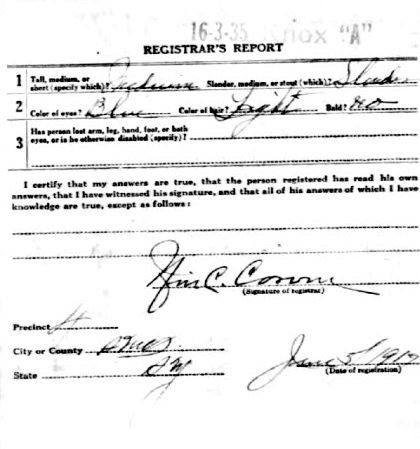 16-3-35 Knox "A"
REGISTRAR'S REPORT
1 Tall, medium, or short (specify which)? Medium Slender, medium, or stout (which)? Slender
2 Color of eyes? Blue Color of hair? Light Bald? no
3 Has person lost arm, leg, hand, foot, or both eyes, or is he otherwise disabled (specify)?
I certify that my answers are true, that the person registered has read his own
answers, that I have witnessed his signature, and that all of his answers of which I have
knowledge are true, except as follows:
C.
(Signature of registrar)
Precinct
City or County Knox
State Ky
June 5/ 1917
(Date of registration)